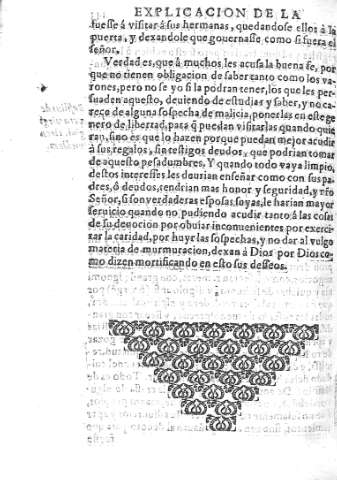 EXPLICACION DE LA
fuesse á visitar á sus hermanas, quedandose ellos à la
puerta, y dexandole que gouernasse como si fuera el
señor.
Verdad es, que á muchos les acusa la buena fe, por
que no tienen obligacion de saber tanto como los va
rones, pero no se yo si la podran tener, los que les per-
suaden aquesto, deuiendo de estudiar y saber, y no ca-
rece de alguna sospecha de malicia, ponerlas en este ge
nero de libertad, para q̃ puedan visitarlas quando quie
ran, sino es que lo hazen porque puedan mejor acudir
a sus regalos, sin testigos deudos, que podrian tomar
de aquesto pesadumbres, Y quando todo vaya limpio,
destos interesses les deurian enseñar como con sus pa
dres, ó deudos, tendrian mas honor y seguridad, y nr̃o
Señor, si son verdaderas esposas suyas, le harian mayor
seruicio quando no pudiendo acudir tanto á las cosas
de su deuocion por obuiar inconuenientes por exerci
tar la caridad, por huyr las sospechas, y no dar al vulgo
materia de murmuracion, dexan á Dios por Dios co-
mo dizen mortificando en esto sus desseos.